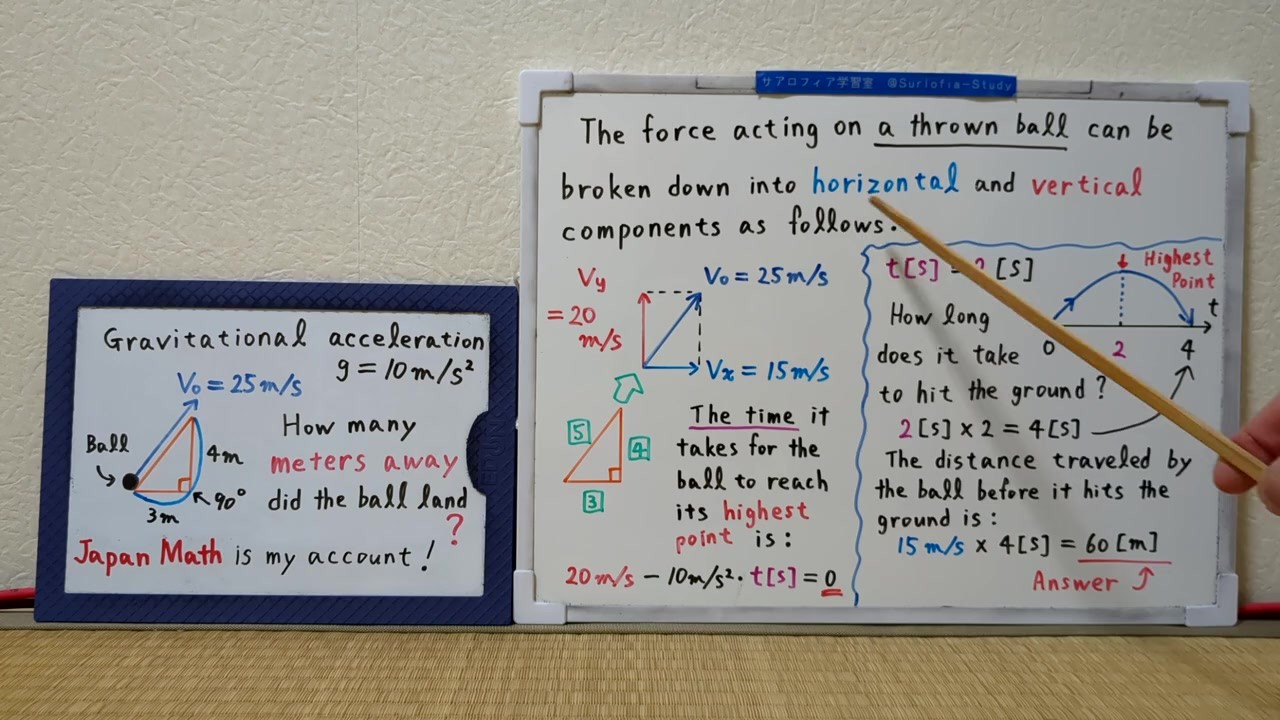 Gravitational acceleration
g = 10 m/s²
V₀ = 25 m/s
Ball
4m
90°
3m
How many
meters away
did the ball land
?
Japan Math is my account!
サアロフィア学習室 @Surlofia-Study
The force acting on a thrown ball can be
broken down into horizontal and vertical
components as follows.
Vy
= 20
m/s
V₀ = 25 m/s
Vx = 15 m/s
5
4
3
The time it
takes for the
ball to reach
its highest
point is:
20 m/s − 10 m/s² · t[s] = 0
t[s] = 2 [s]
Highest
Point
t
0
2
4
How long
does it take
to hit the ground?
2[s] × 2 = 4[s]
The distance traveled by
the ball before it hits the
ground is:
15 m/s × 4[s] = 60 [m]
Answer